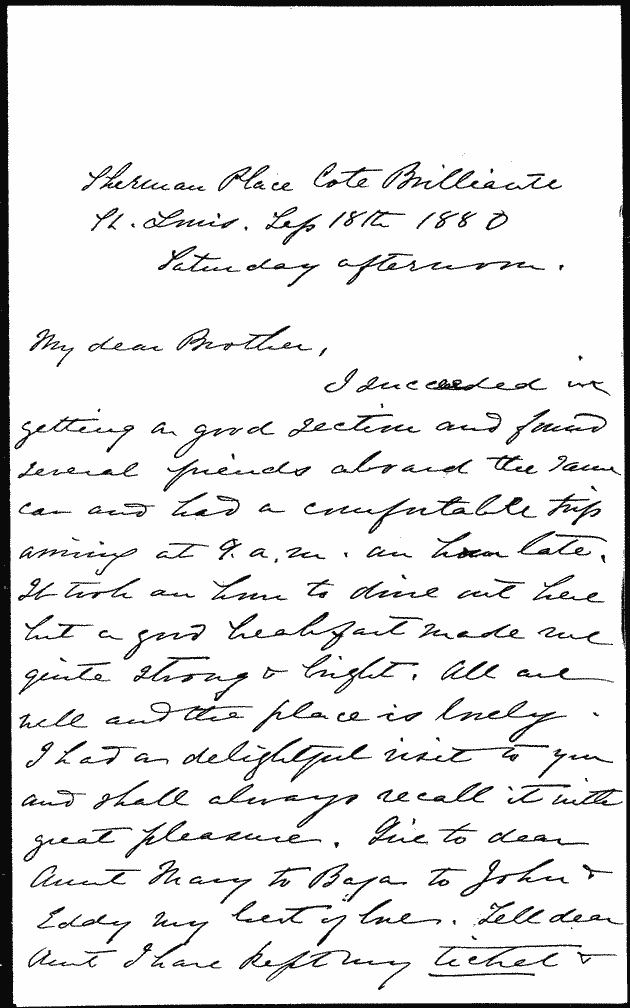 Sherman Place Cote Brilliante
St. Louis. Sep 18th 1880
Saturday afternoon.
My dear Brother,
I succeeded in
getting a good section and found
several friends aboard the same
car and had a comfortable trip
arriving at 9. a.m. an hour late.
It took an hour to drive out here
but a good breakfast made me
quite strong & bright. All are
well and the place is lovely.
I had a delightful visit to you
and shall always recall it with
great pleasure. Give to dear
Aunt Mary to Baya to John &
Eddy my best of love. Tell dear
Aunt I have kept my ticket &